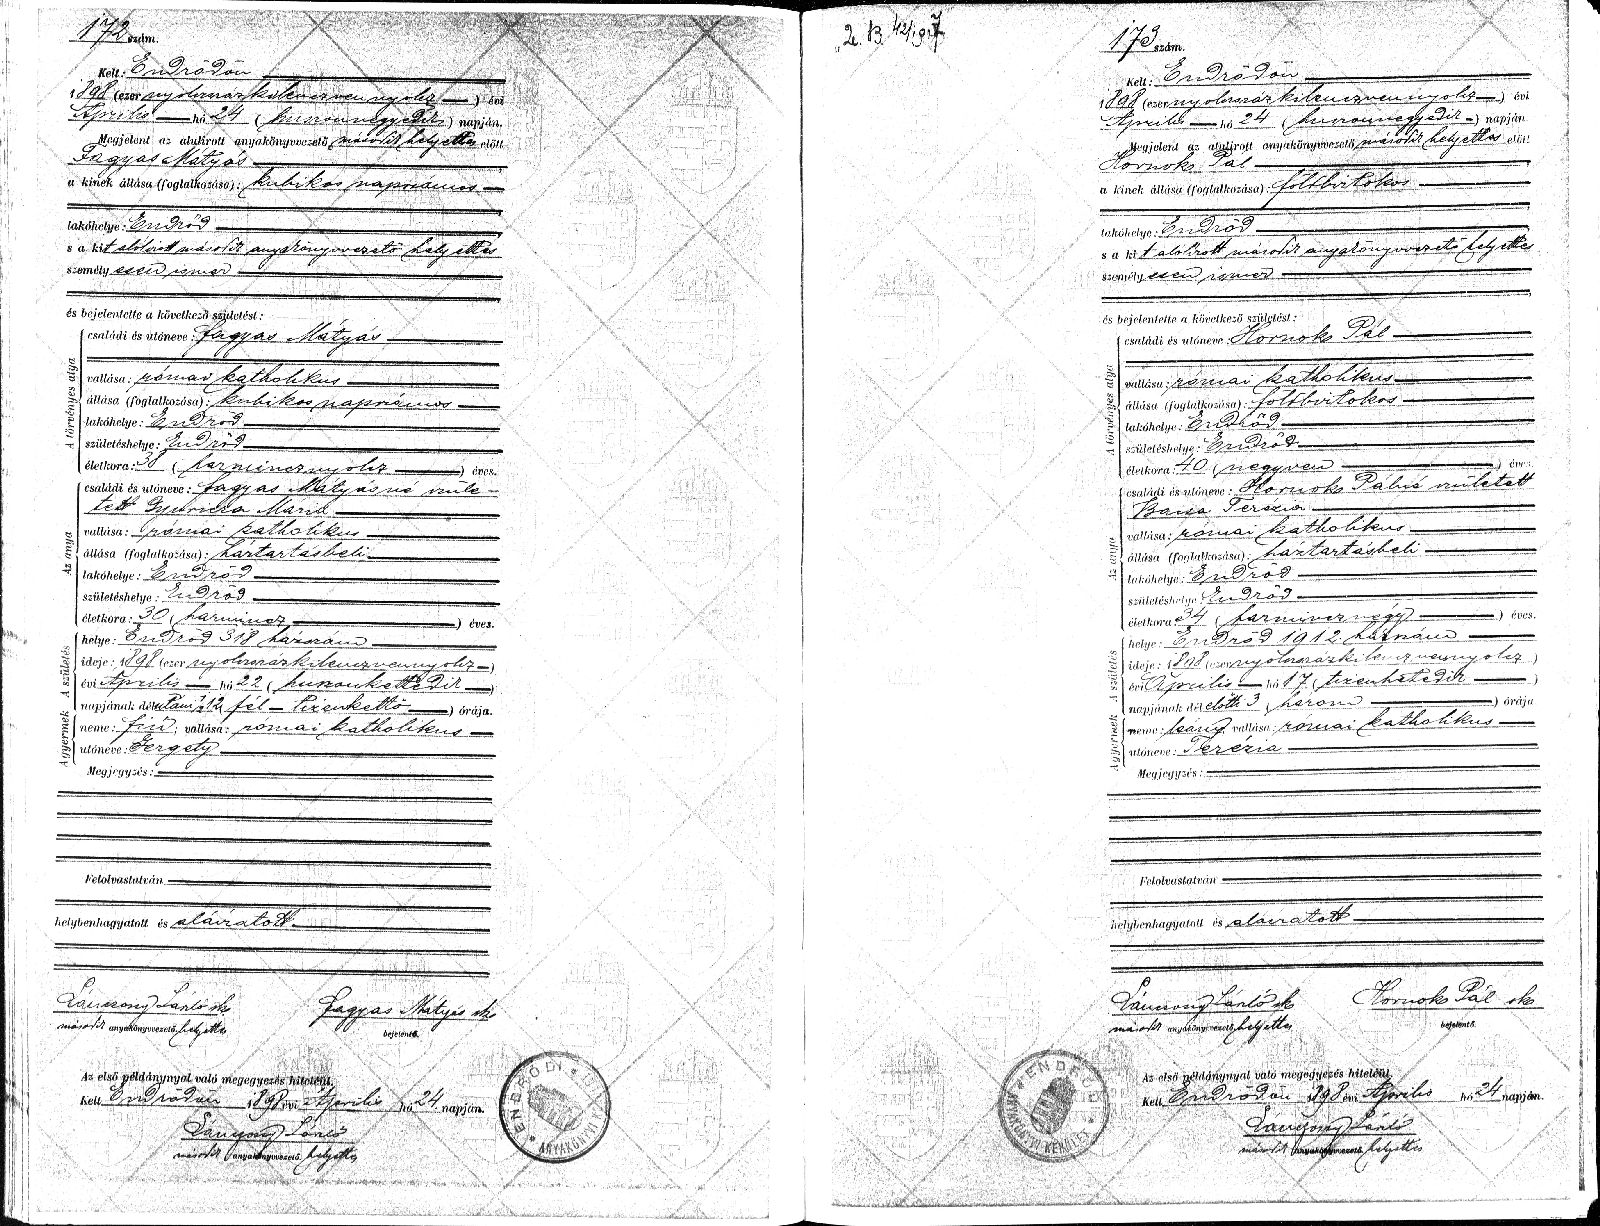 172 szám.
Kelt: Endrődön
1898 (ezer nyolcszázkilenczvennyolcz) évi
Április hó 24 (huszonnegyedik) napján.
Megjelent az alulirott anyakönyvvezető második helyettes előtt
Fagyas Mátyás
a kinek állása (foglalkozása): kubikos napszámos
lakóhelye: Endrőd
s a kit alólirott második anyakönyvvezető helyettes
személyesen ismer
és bejelentette a következő születést:
A törvényes atya
családi és utóneve: Fagyas Mátyás
vallása: római katholikus
állása (foglalkozása): kubikos napszámos
lakóhelye: Endrőd
születéshelye: Endrőd
életkora: 38 (harmincznyolcz) éves.
Az anya
családi és utóneve: Fagyas Mátyásné szüle-
tett Gyuricza Mária
vallása: római katholikus
állása (foglalkozása): háztartásbeli
lakóhelye: Endrőd
születéshelye: Endrőd
életkora: 30 (harmincz) éves.
A születés
helye: Endrőd 318 házszám
ideje: 1898 (ezer nyolcszázkilenczvennyolcz)
évi Április hó 22 (huszonkettedik)
napjának délutáni ½12 fél - tizenkettő) órája.
A gyermek
neme: fiú; vallása: római katholikus
utóneve: Gergely
Megjegyzés:
Felolvastatván
helybenhagyatott és aláiratott
Lánczony László sk
második anyakönyvvezető helyettes
Fagyas Mátyás sk
bejelentő.
Az első példánynyal való megegyezés hiteléül.
Kelt Endrődön 1898 évi Április hó 24 napján.
Lánczony László
második anyakönyvvezető helyettes
ENDRŐDI
ANYAKÖNYVI
173 szám.
Kelt: Endrődön
1898 (ezer nyolcszázkilenczvennyolcz) évi
Április hó 24 (huszonnegyedik) napján
Megjelent az alulirott anyakönyvvezető második helyettes előtt
Hornok Pál
a kinek állása (foglalkozása): földbirtokos
lakóhelye: Endrőd
s a kit alólirott második anyakönyvvezető helyettes
személyesen ismer
és bejelentette a következő születést:
A törvényes atya
családi és utóneve: Hornok Pál
vallása: római katholikus
állása (foglalkozása): földbirtokos
lakóhelye: Endrőd
születéshelye: Endrőd
életkora: 40 (negyven) éves.
Az anya
családi és utóneve: Hornok Pálné született
Barna Terézia
vallása: római katholikus
állása (foglalkozása): háztartásbeli
lakóhelye: Endrőd
születéshelye: Endrőd
életkora 34 (harmincznégy) éves.
A születés
helye: Endrőd 1912 házszám
ideje: 1898 (ezer nyolcszázkilenczvennyolcz)
évi Április hó 17 (tizenhetedik)
napjának délelőtti 3 (három) órája
A gyermek
neme: leány vallása: római katholikus
utóneve: Terézia
Megjegyzés:
Felolvastatván
helybenhagyatott és aláiratott
Lánczony László sk
második anyakönyvvezető helyettes
Hornok Pál sk
bejelentő.
Az első példánynyal való megegyezés hiteléül.
Kelt Endrődön 1898 évi Április hó 24 napján.
Lánczony László
második anyakönyvvezető helyettes
ANYAKÖNYVI KERÜLET